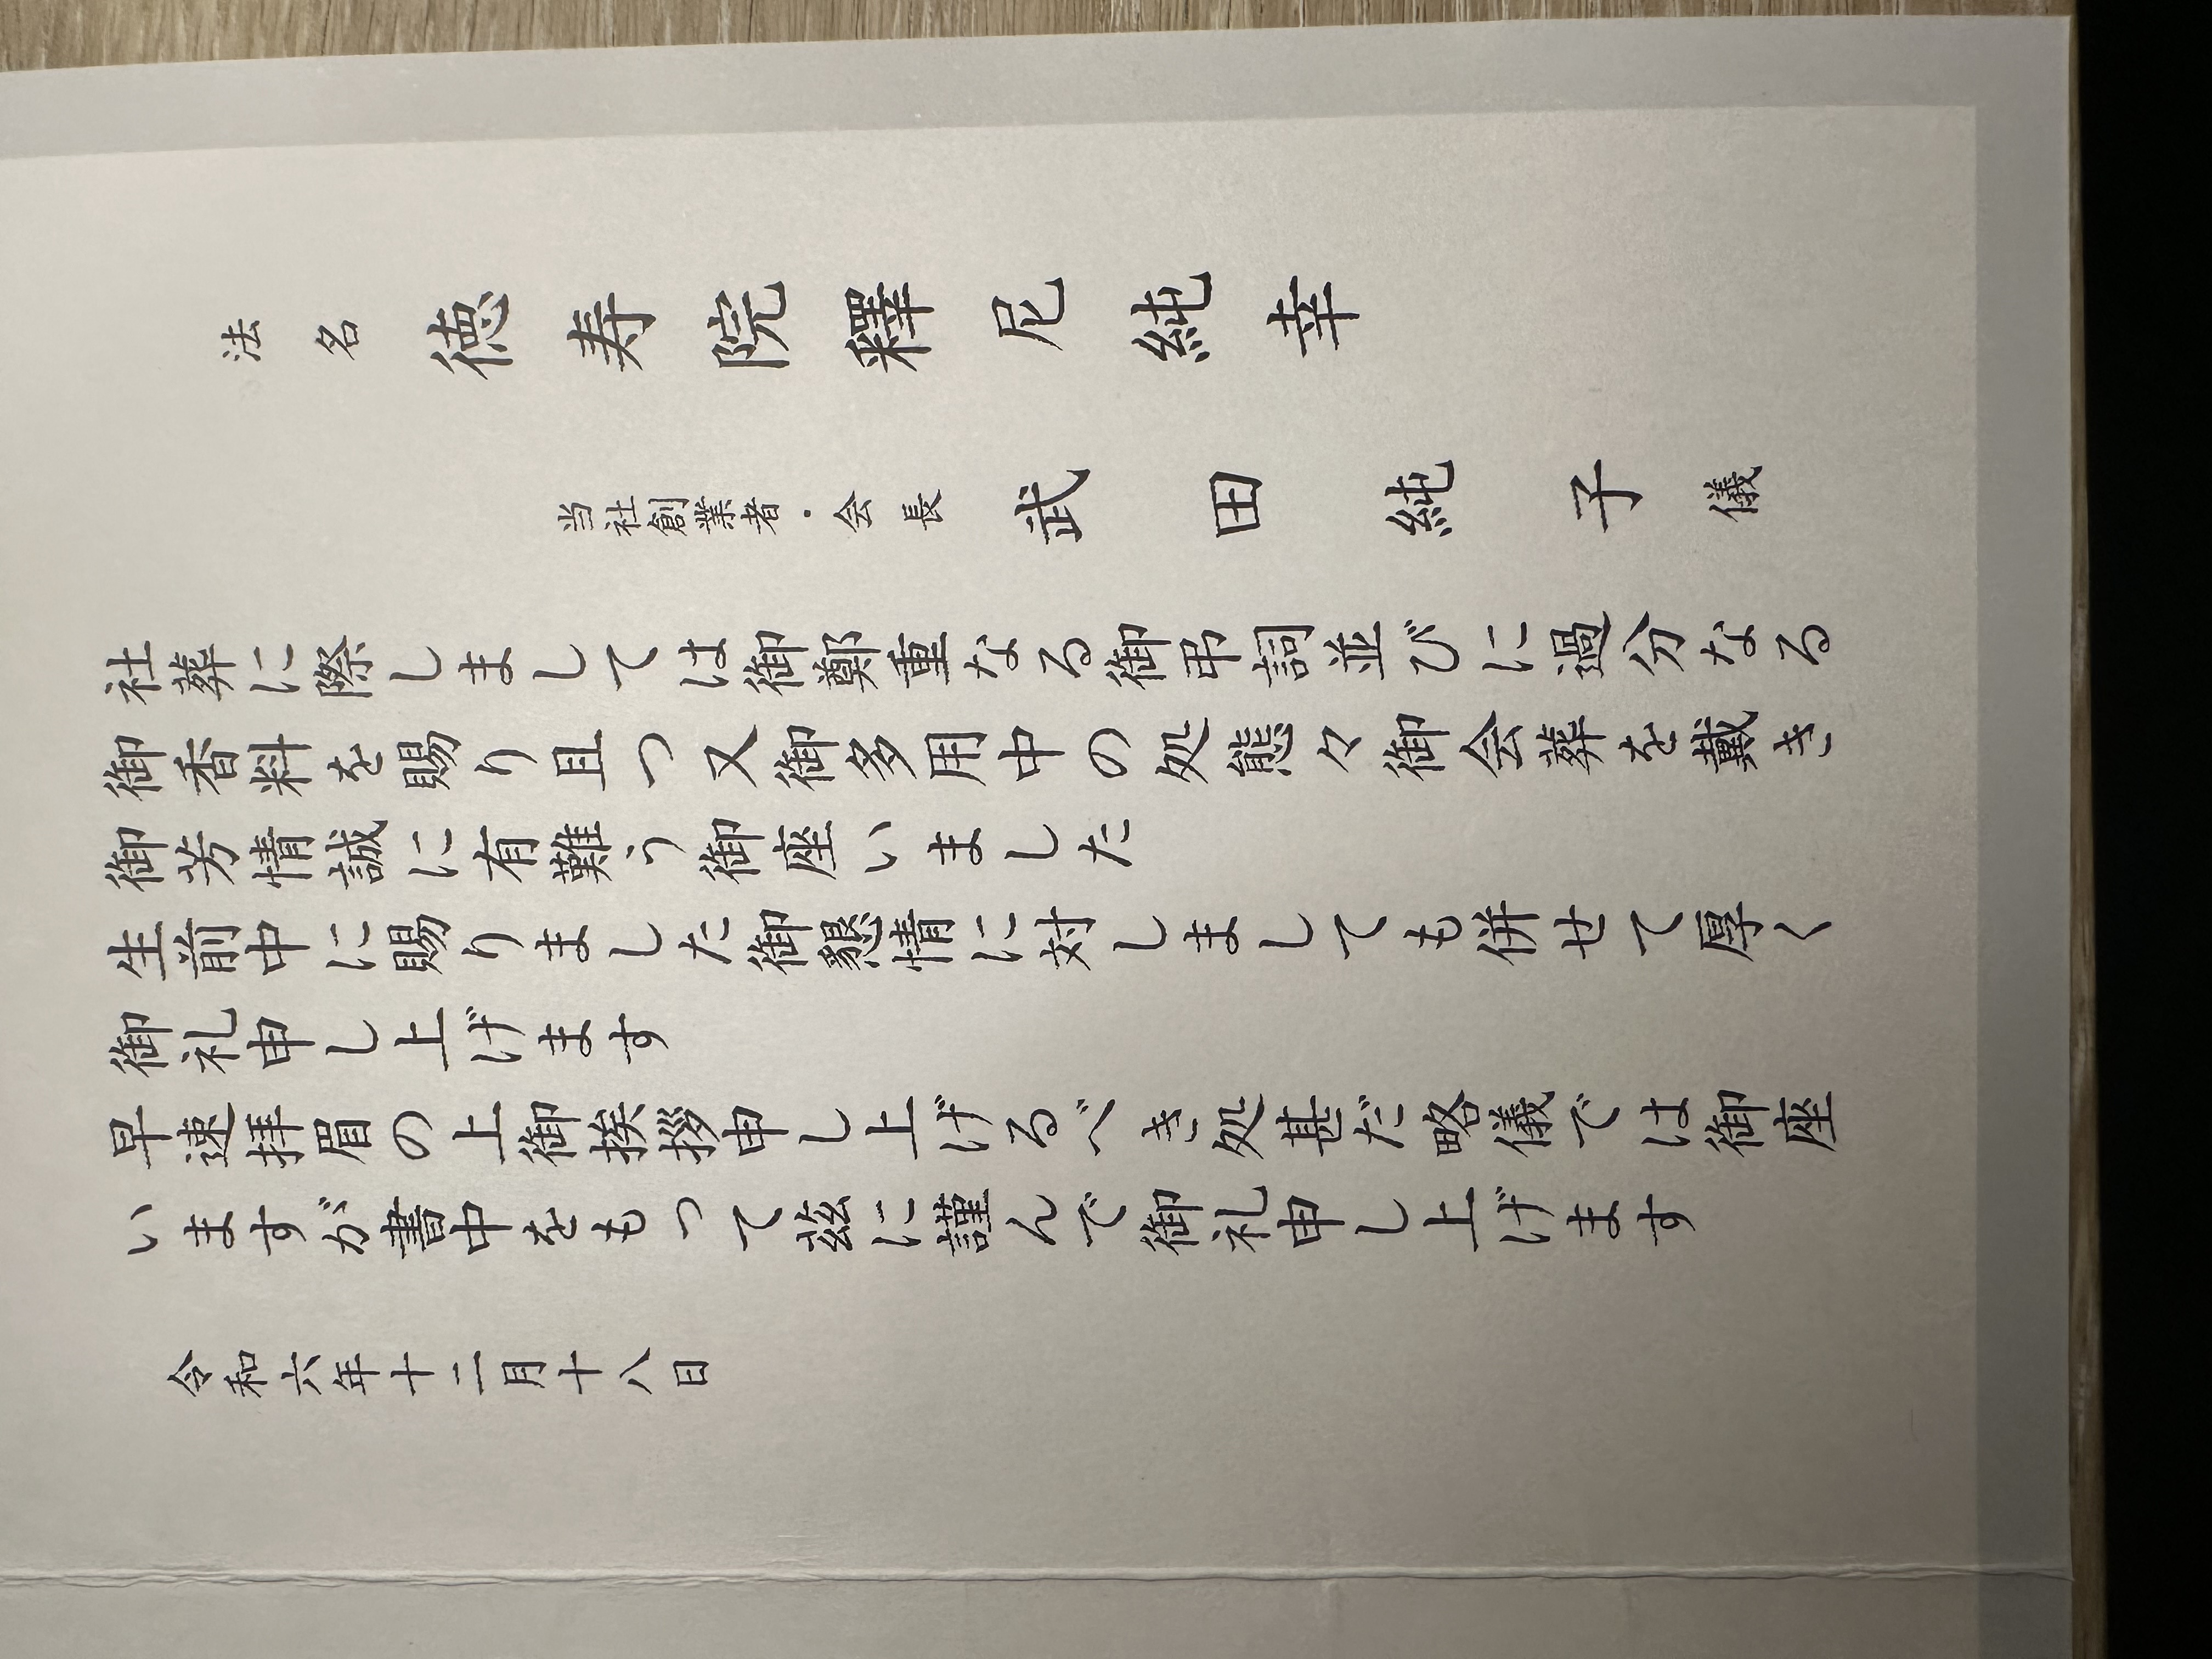 法名 徳寿院釋尼純幸
当社創業者・会長 武田純子儀
社葬に際しましては御鄭重なる御弔詞並びに過分なる
御香料を賜り且つ又御多用中の処態々御会葬を戴き
御芳情誠に有難う御座いました
生前中に賜りました御懇情に対しましても併せて厚く
御礼申し上げます
早速拝眉の上御挨拶申し上げるべき処甚だ略儀では御座
いますが書中をもって茲に謹んで御礼申し上げます
令和六年十二月十八日